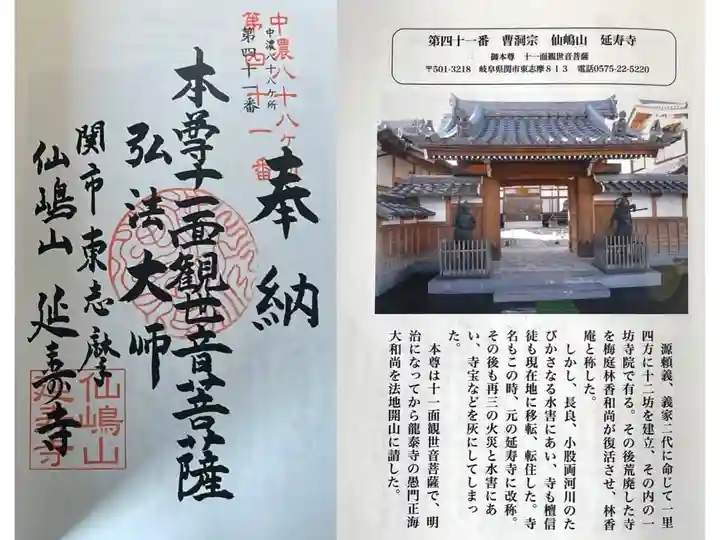 奉納
中濃八十八ヶ所
第四十一番
中濃八十八ヶ
第四十一番
本尊十一面観世音菩薩
弘法大師
関市東志摩
仙嶋山 延寿寺
仙嶋山
延寿寺
第四十一番 曹洞宗 仙嶋山 延寿寺
御本尊 十一面観世音菩薩
〒501-3218 岐阜県関市東志摩813 電話0575-22-5220
源頼義、義家二代に命じて一里
四方に十二坊を建立、その内の一
坊寺院で有る。その後荒廃した寺
を梅庭林香和尚が復活させ、林香
庵と称した。
しかし、長良、小股両河川のた
びかさなる水害にあい、寺も檀信
徒も現在地に移転、転住した。寺
名もこの時、元の延寿寺に改称。
その後も再三の火災と水害にあ
い、寺宝などを灰にしてしまっ
た。
本尊は十一面観世音菩薩で、明
治になってから龍泰寺の愚門正海
大和尚を法地開山に請した。